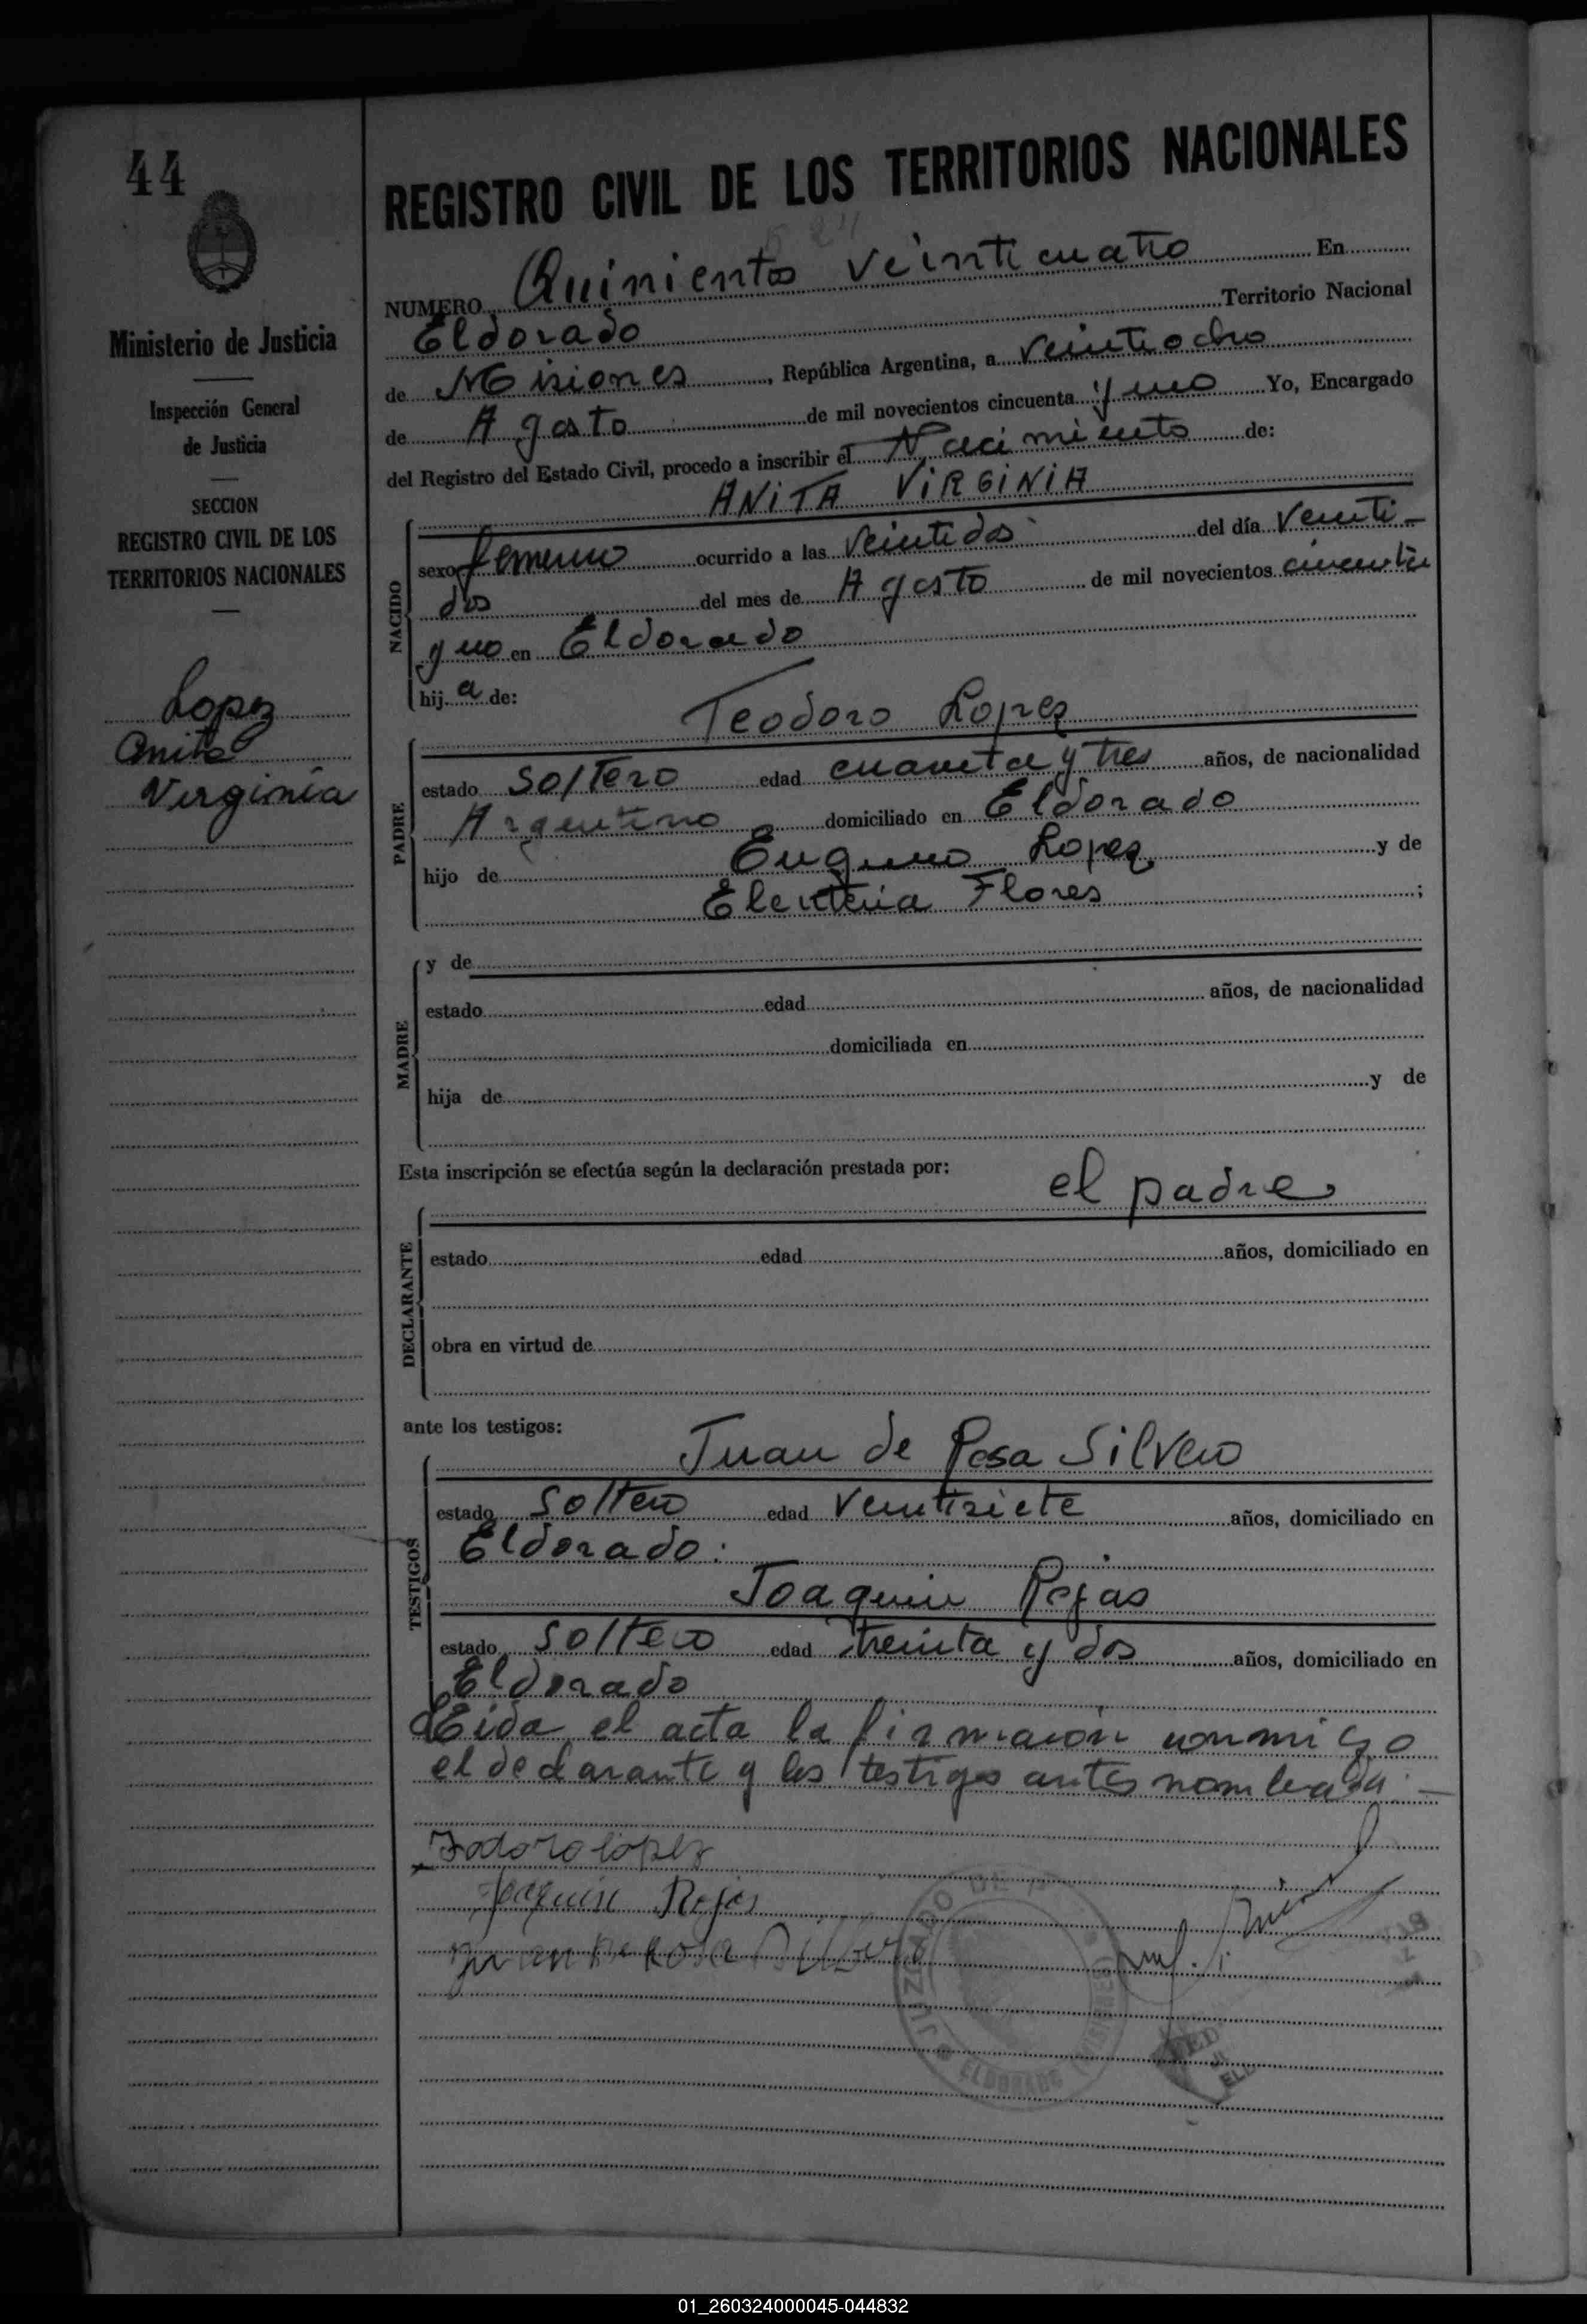 44
Ministerio de Justicia
Inspección General
de Justicia
SECCION
REGISTRO CIVIL DE LOS
TERRITORIOS NACIONALES
Lopez
Anita
Virginia
REGISTRO CIVIL DE LOS TERRITORIOS NACIONALES
524
NUMERO Quinientos veinticuatro En
Eldorado Territorio Nacional
de Misiones, República Argentina, a veintiocho
de Agosto de mil novecientos cincuenta y uno Yo, Encargado
del Registro del Estado Civil, procedo a inscribir el Nacimiento de:
ANITA VIRGINIA
NACIDO
sexo femenino ocurrido a las veintidos del día veinti-
dos del mes de Agosto de mil novecientos cincuenta
y uno en Eldorado
hij a de:
Teodoro Lopez
PADRE
estado soltero edad cuarenta y tres años, de nacionalidad
Argentino domiciliado en Eldorado
hijo de Eugenio Lopez y de
Eleuteria Flores ;
MADRE
y de
estado edad años, de nacionalidad
domiciliada en
hija de y de
Esta inscripción se efectúa según la declaración prestada por:
el padre
DECLARANTE
estado edad años, domiciliado en
obra en virtud de
ante los testigos:
Juan de Rosa Silvero
TESTIGOS
estado soltero edad veintisiete años, domiciliado en
Eldorado.
Joaquin Rojas
estado soltero edad treinta y dos años, domiciliado en
Eldorado
Leida el acta la firmaron conmigo
el declarante y los testigos antes nombrados.-
Todoro lopez
Joaquin Rojas
Juan De Rosa
JUZGADO DE P
ELDORADO (MISIONES)
01_260324000045-044832